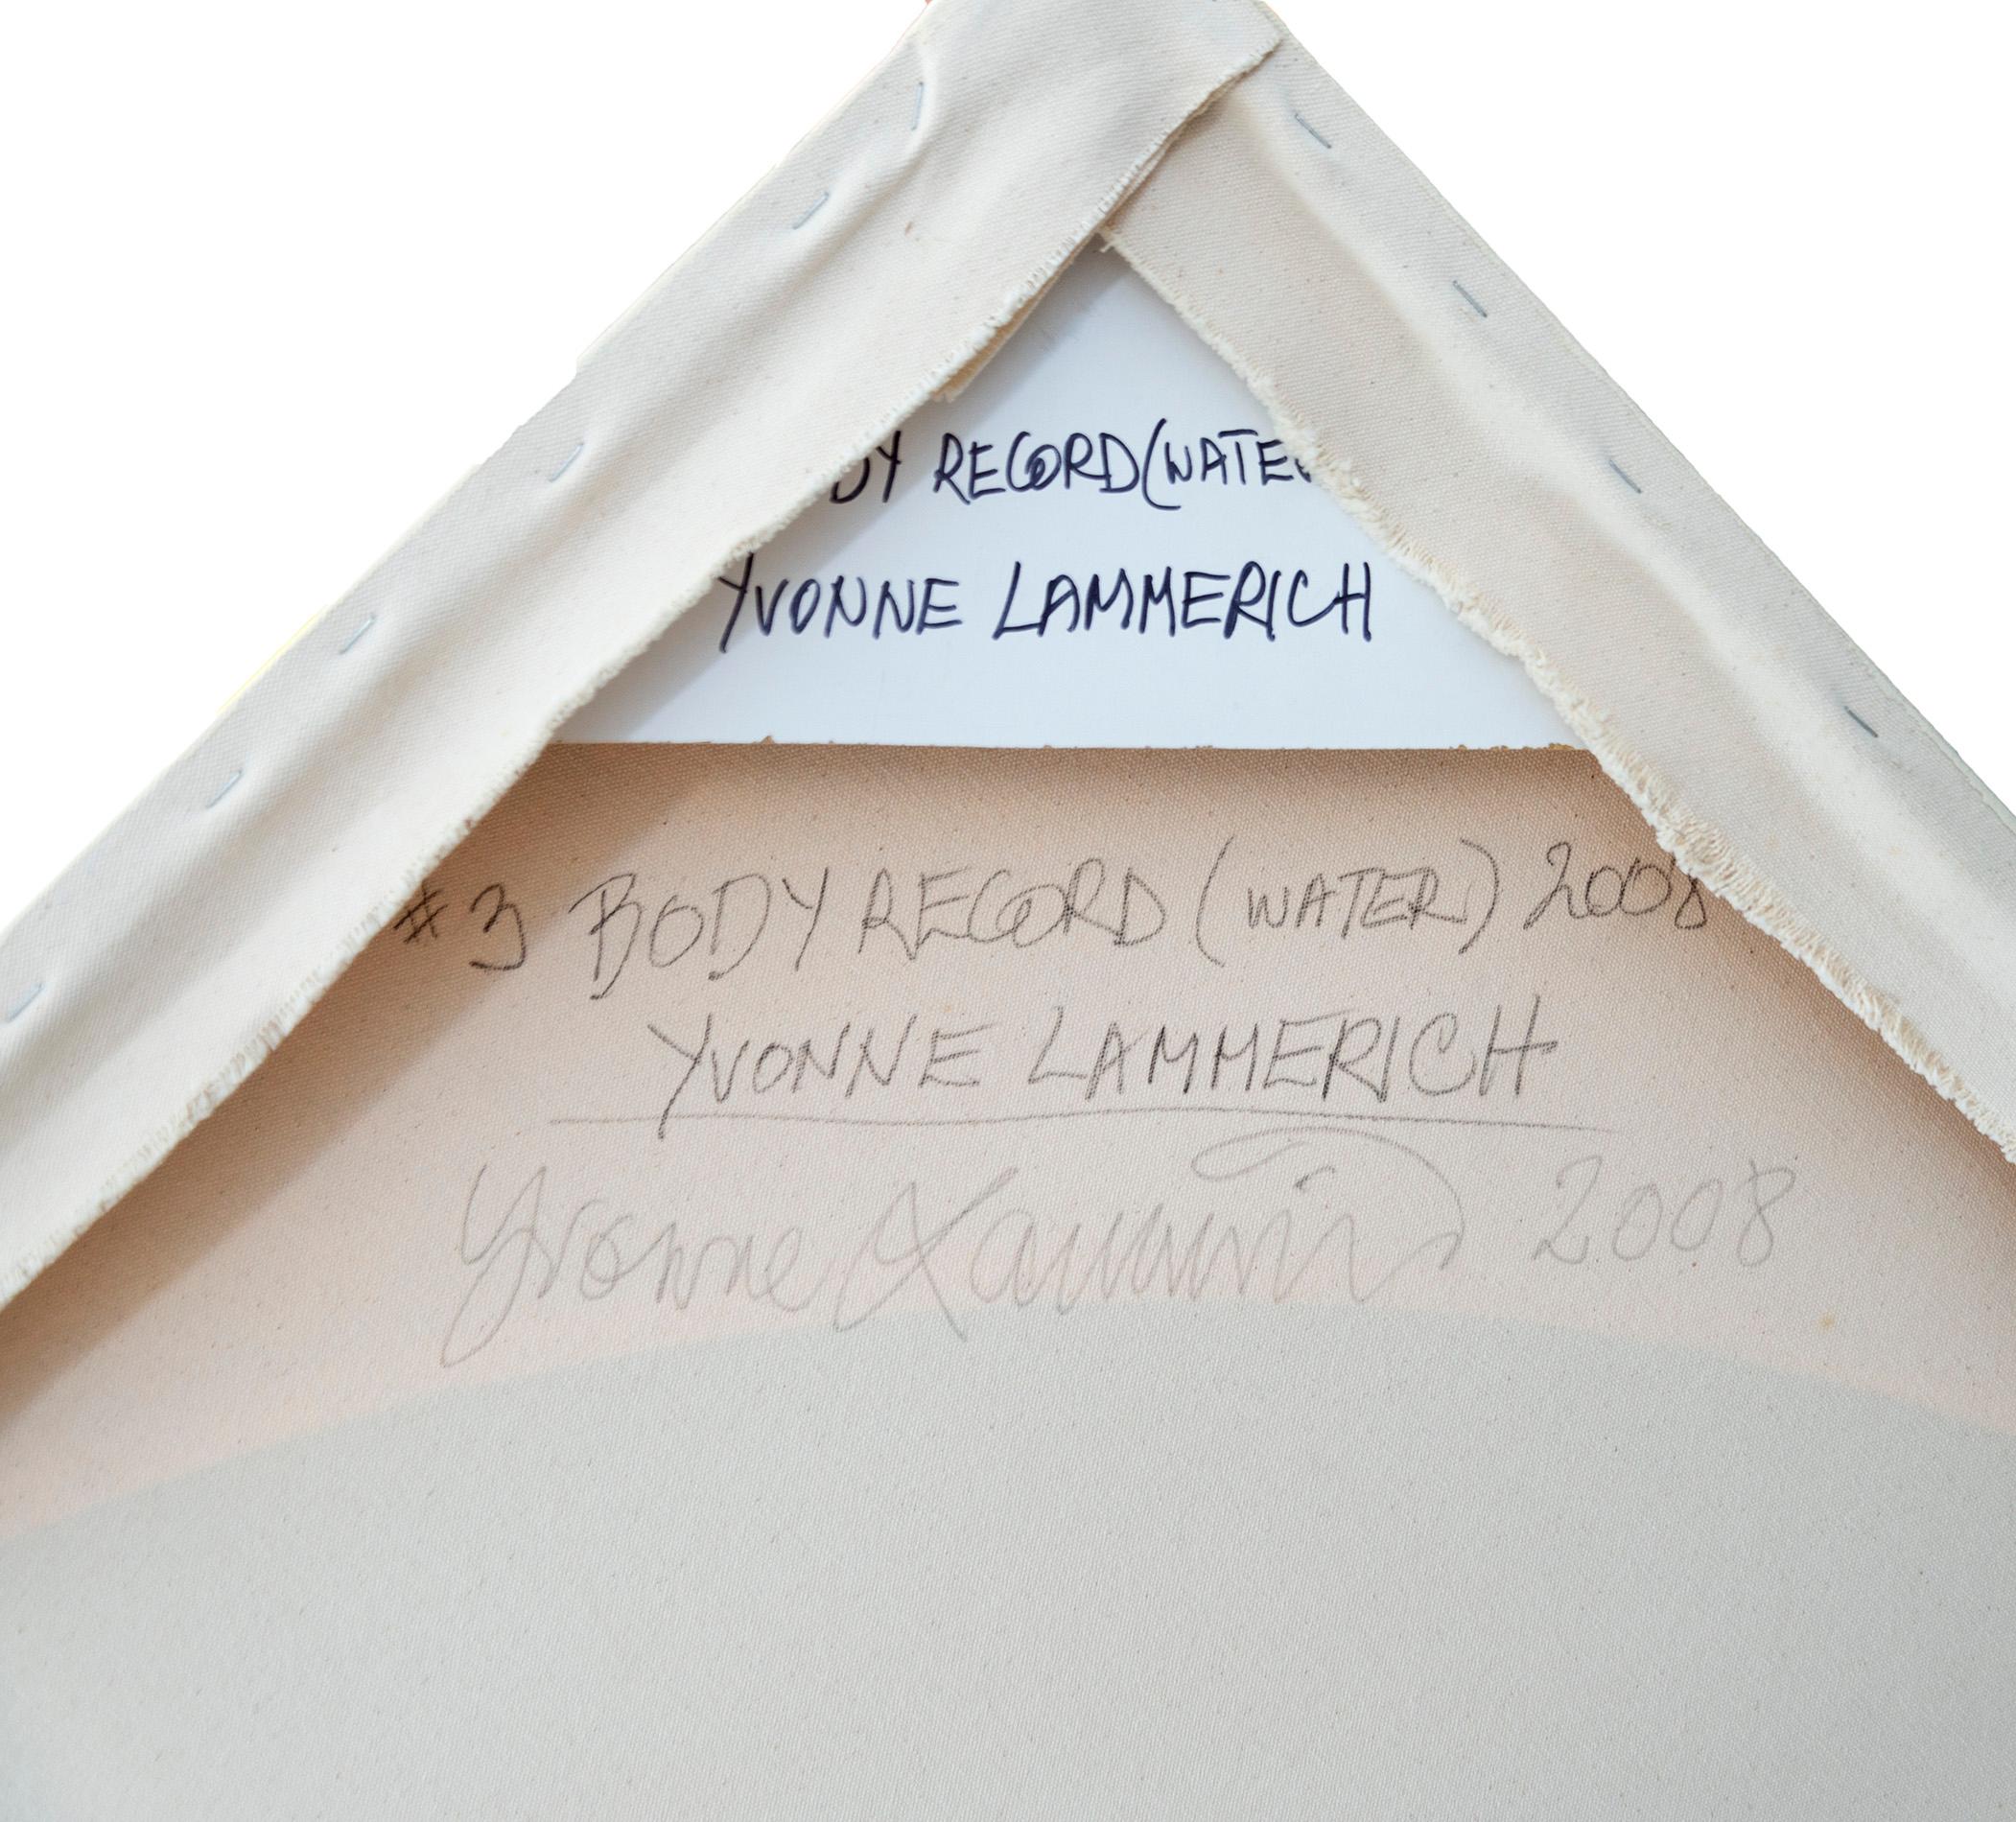 DY RECORD (WATER
YVONNE LAMMERICH
#3 BODY RECORD (WATER) 2008
YVONNE LAMMERICH
Yvonne Lammerich 2008